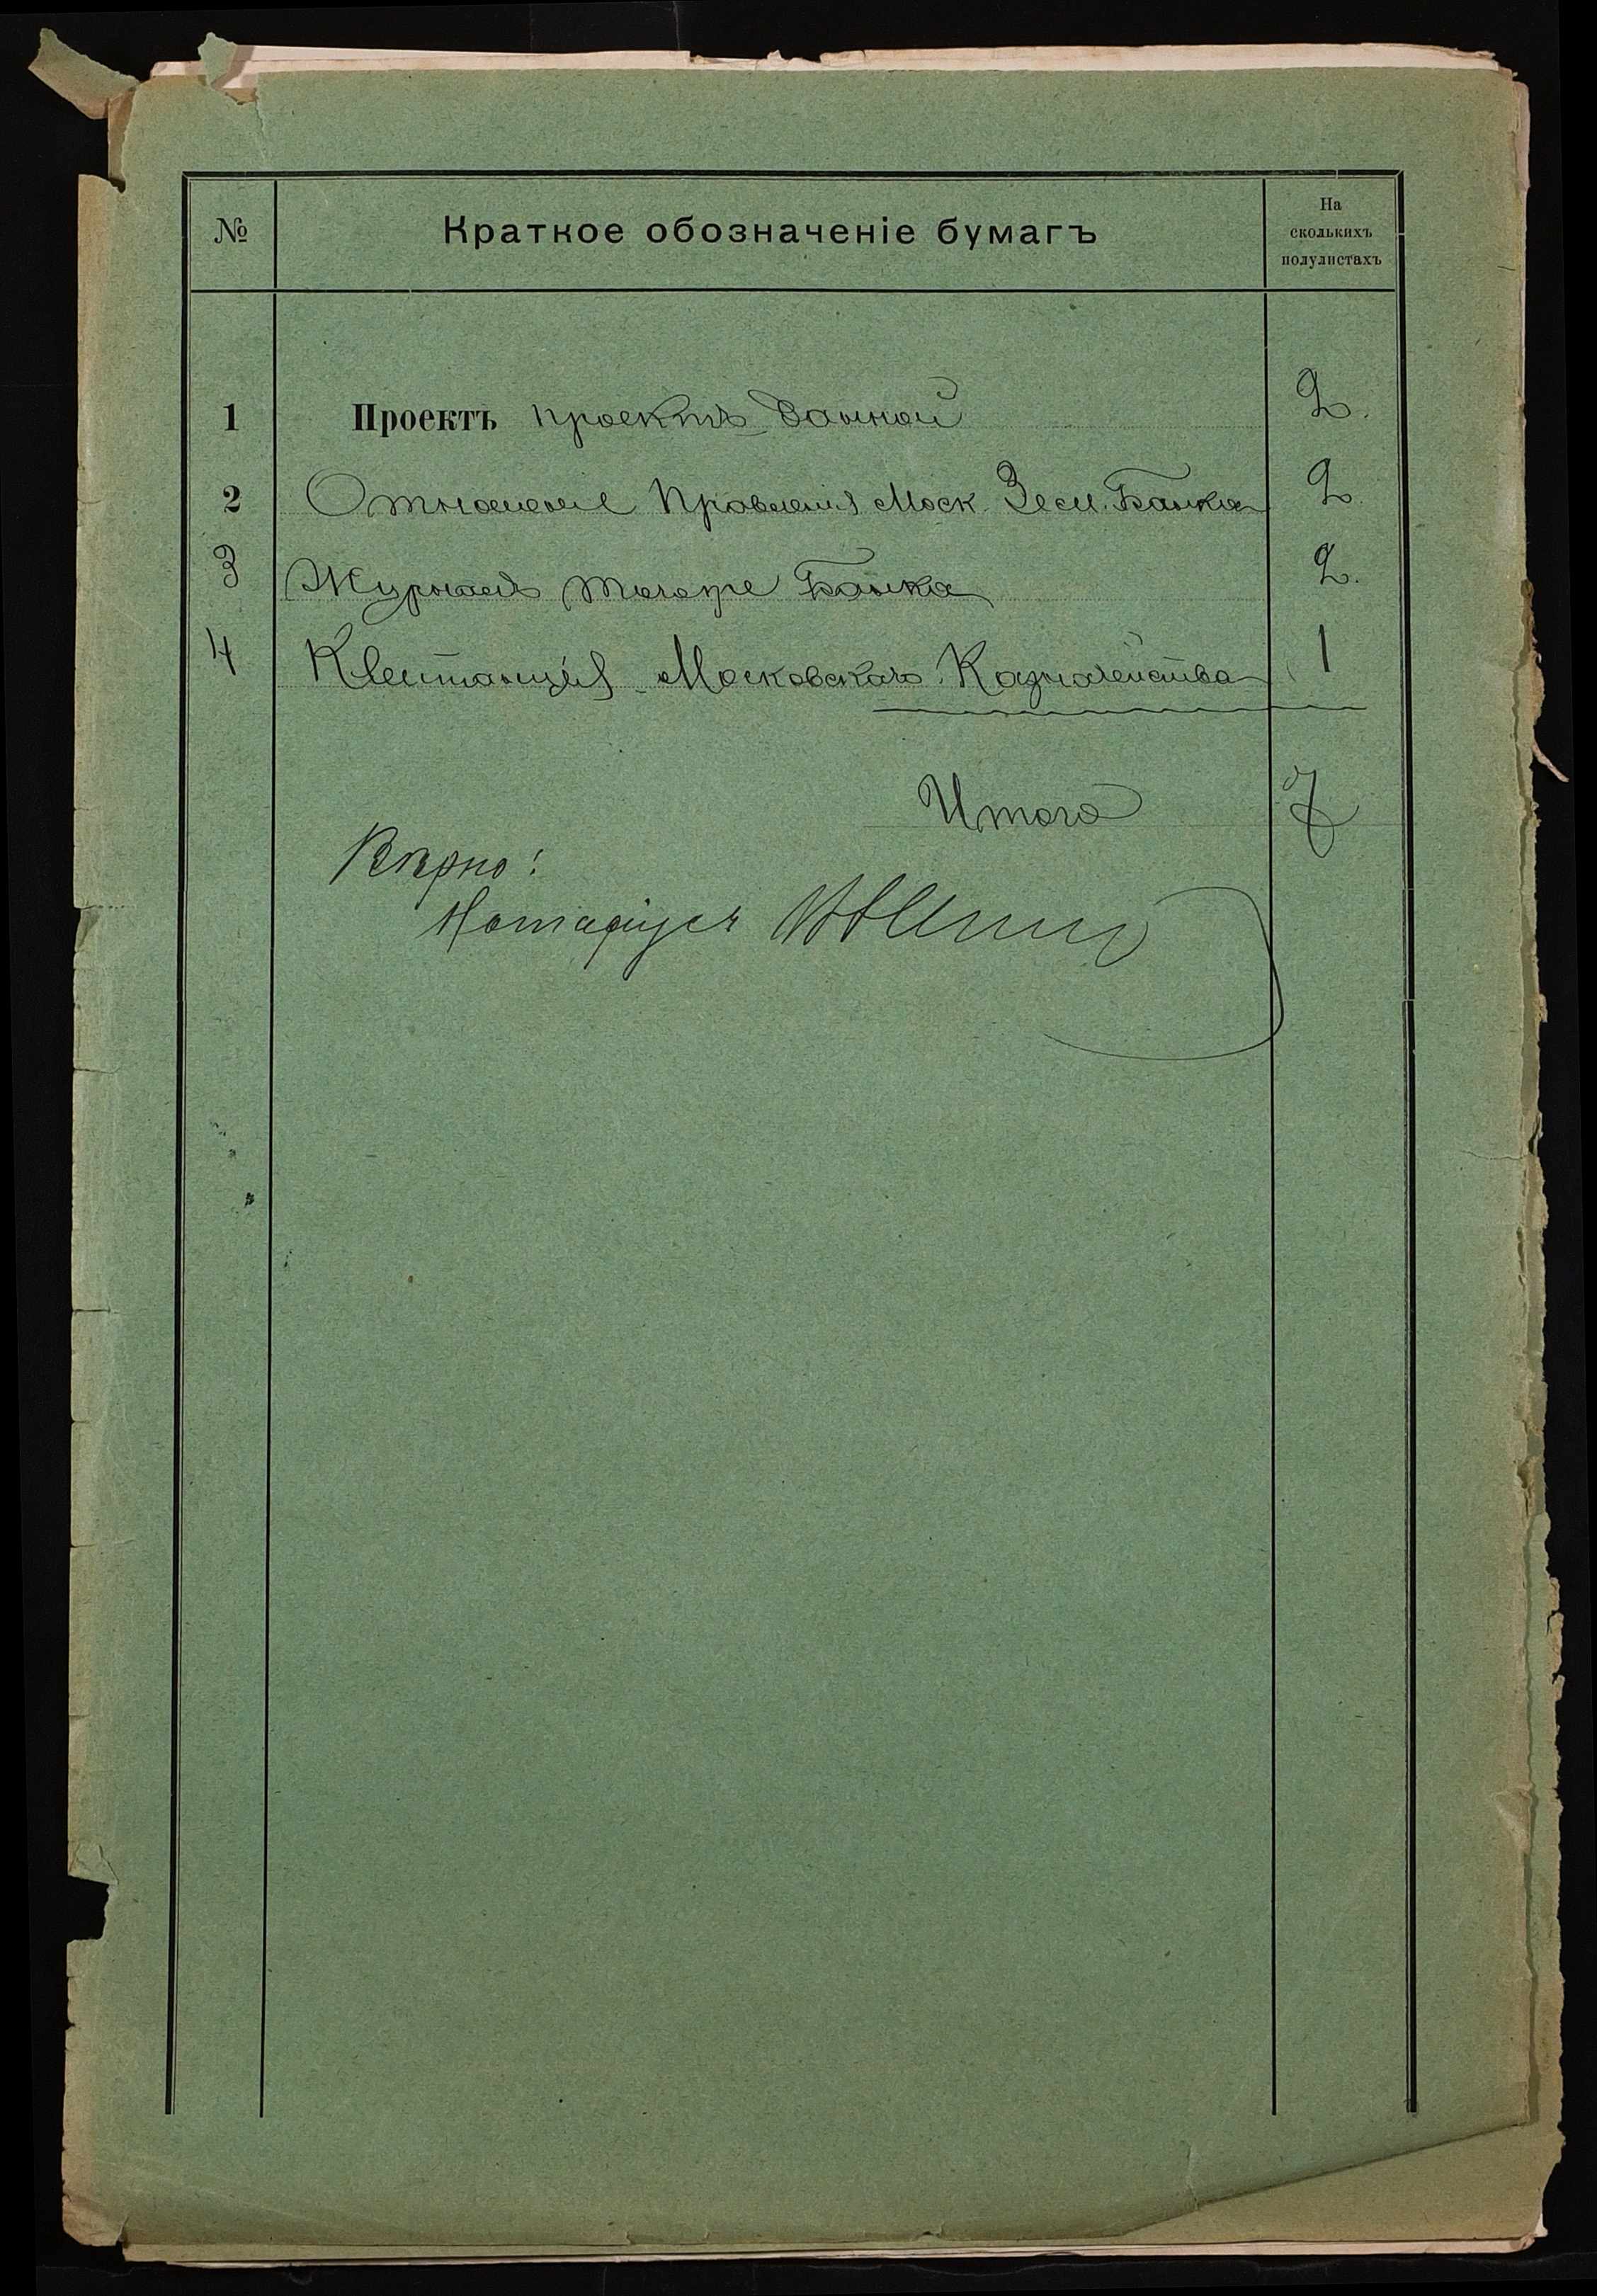 № Краткое обозначеніе бумагъ На скольких​ъ полулистахъ
1 Проектъ проектъ данной 2.
2 Отношеніе Правленія Моск. Зем. Банка 2.
3 Журналъ того же Банка 2.
4 Квитанція Московскаго Казначейства 1
Итого 7
Вѣрно:
Нотаріусъ